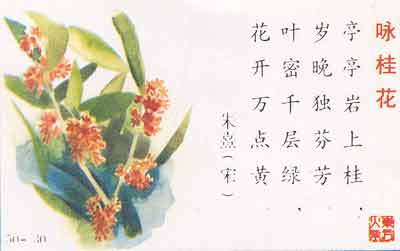 咏桂花
亭亭岩上桂，
岁晚独芬芳。
叶密千层绿，
花开万点黄
朱熹（宋）
50-30